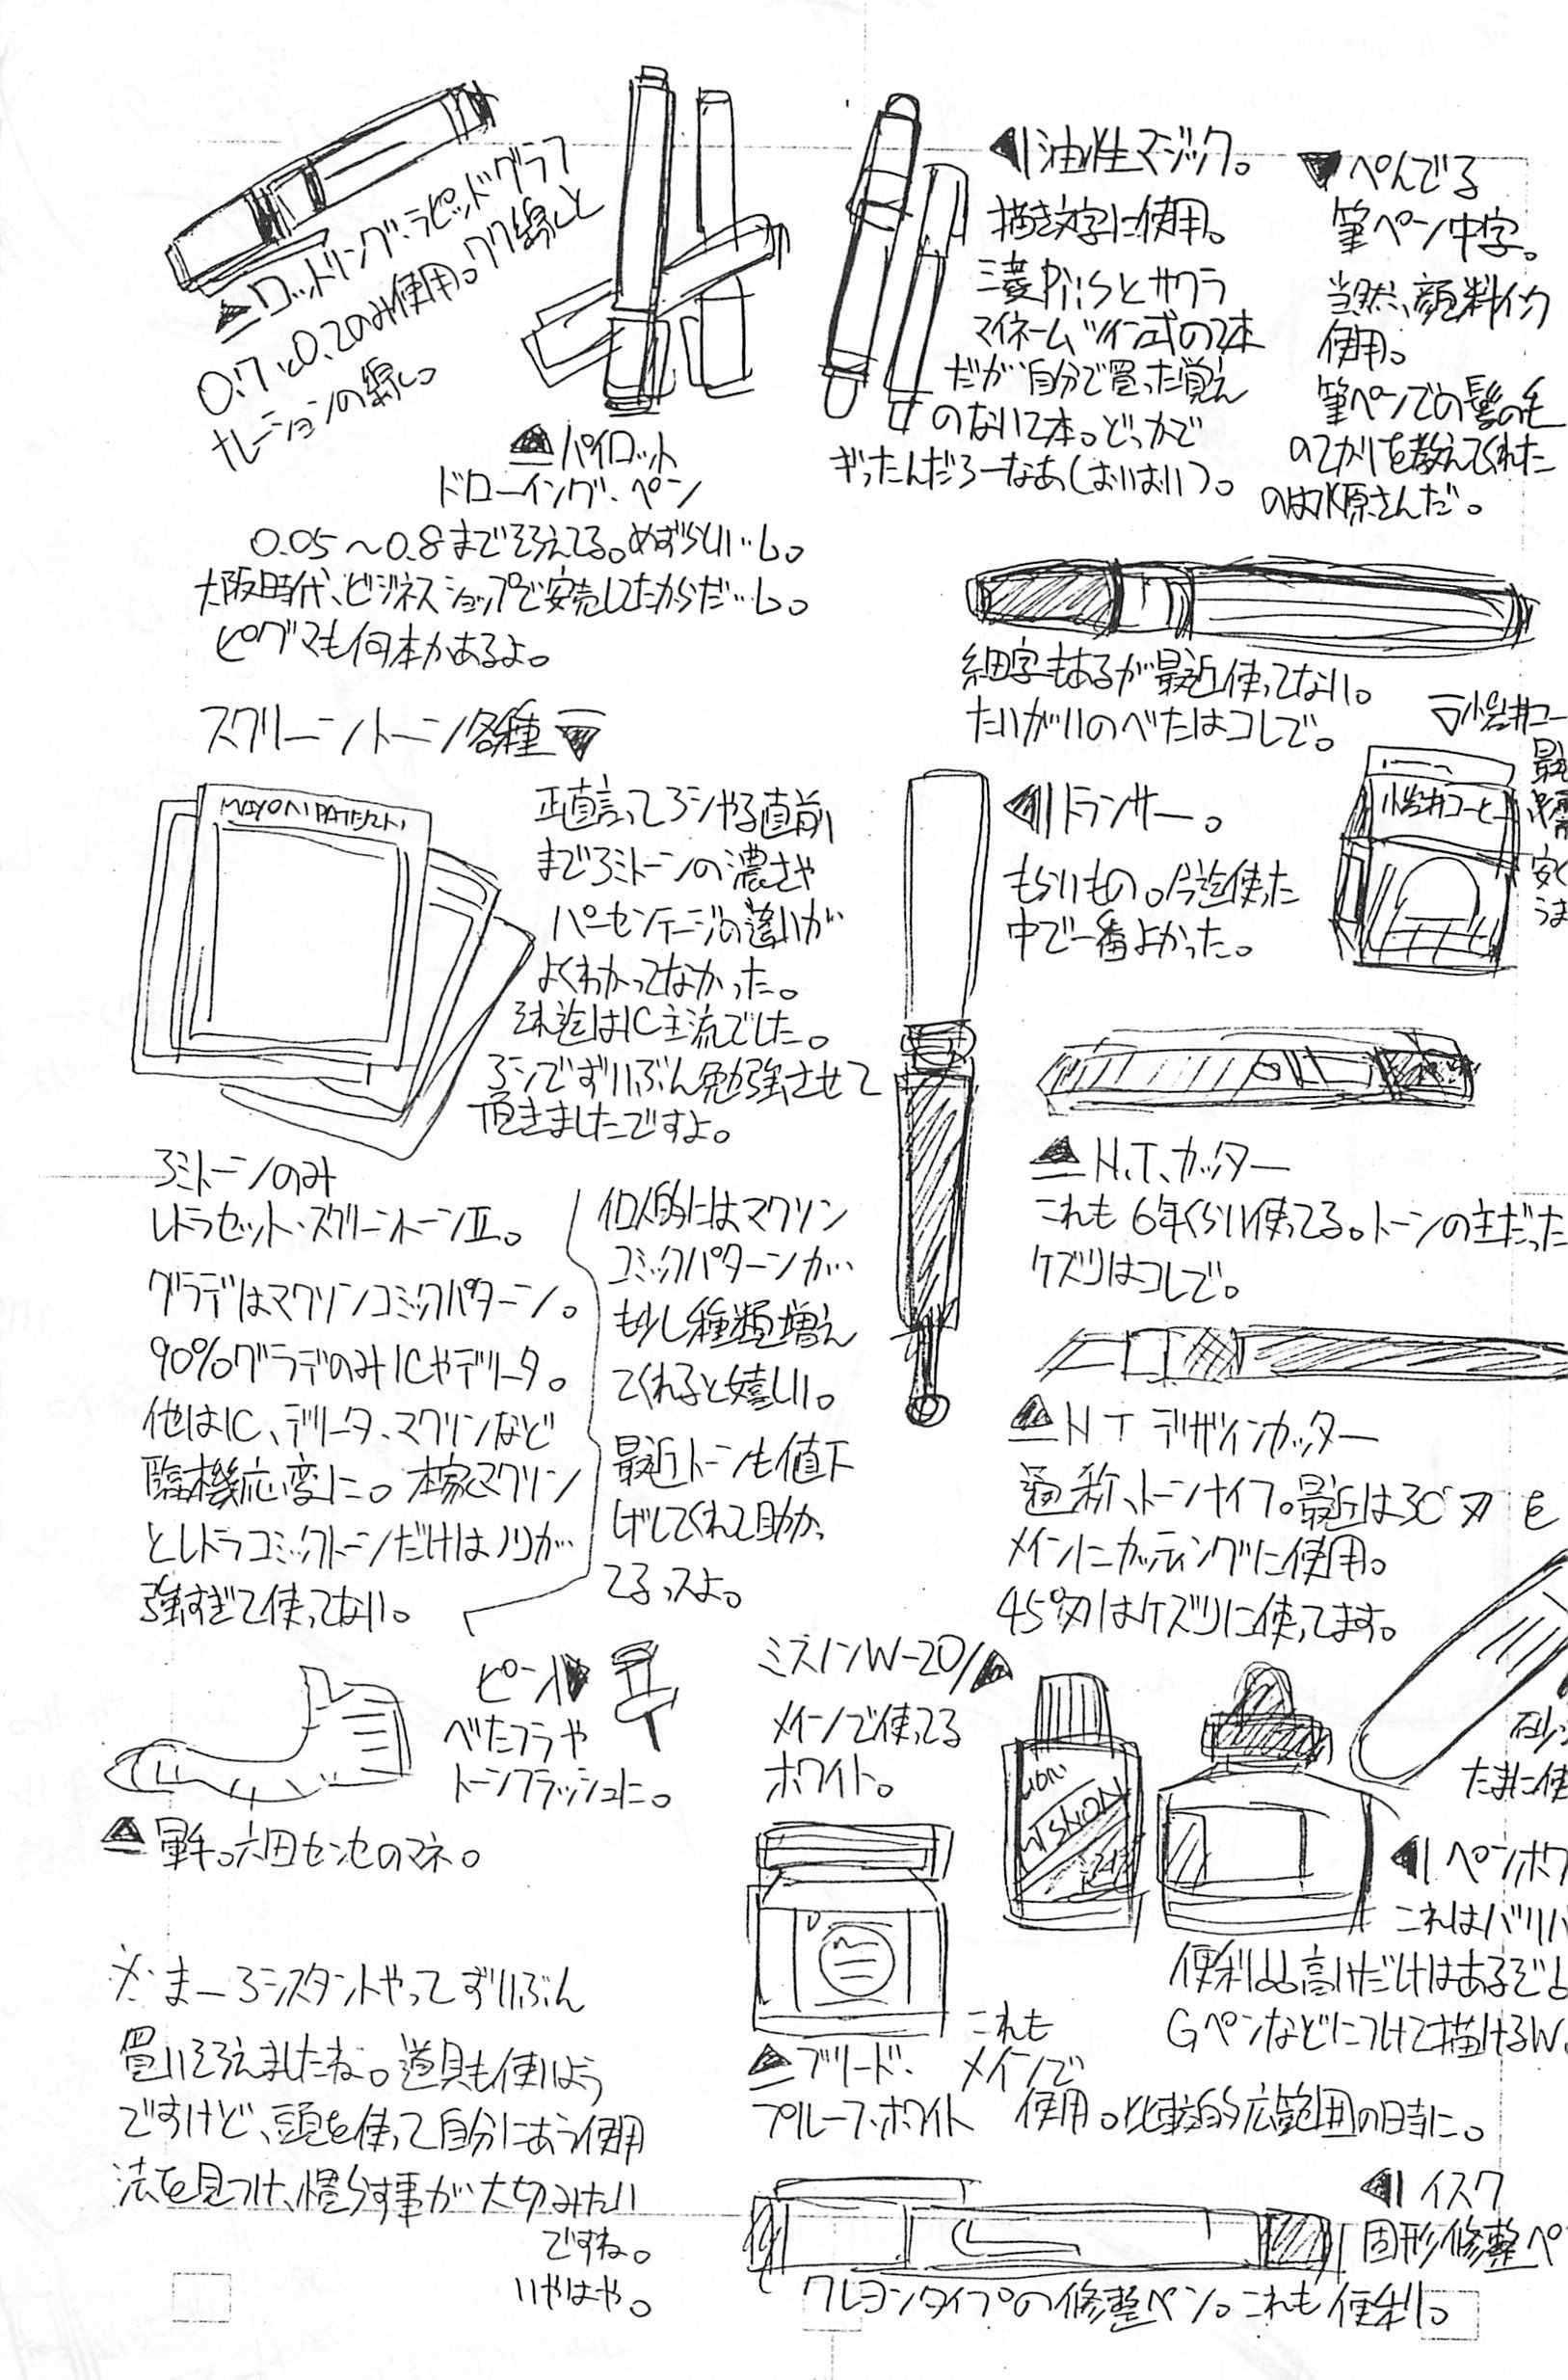 ▲ロットリング・ラピッドグラフ
0.7と0.2のみ使用。ワク線と
ナレーションの線。
▲パイロット
ドローイング・ペン
0.05〜0.8までそろえてる。めずらしい…し。
大阪時代、ビジネスショップで安売してたからだ…し。
ピグマも何本かあるよ。
◀油性マジック。
描き文字に使用。
三菱Piisとサクラ
マイネームツイン式の2本
だが自分で買った覚え
のない2本。どっかで
ぎったんだろーなあ(おいおい)。
▼ぺんてる
筆ペン中字。
当然、顔料インク
使用。
筆ペンでの髪の毛
のてかりを教えてくれた
のは水原さんだ。
細字もあるが最近使ってない。
たいがいのべたはコレで。
スクリーントーン各種▼
正直言ってアシやる直前
までアミトーンの濃さや
パーセンテージの違いが
よくわかってなかった。
それ迄はIC主流でした。
アシでずいぶん勉強させて
頂きましたですよ。
アミトーンのみ
レトラセット・スクリーントーンII。
グラデはマクソンコミックパターン。
90%グラデのみICやデリータ。
他はIC、デリータ、マクソンなど
臨機応変に。本家マクソン
とレトラコミックトーンだけはノリが
強すぎて使ってない。
個人的にはマクソン
コミックパターンが
も少し種類増え
てくれると嬉しい。
最近トーンも値下
げしてくれて助かっ
てるっスよ。
◀トランサー。
もらいもの。今迄使った
中で一番よかった。
▽小岩井コー
小岩井コーヒー
安く
▲N.T.カッター
これも6年くらい使ってる。トーンの主だった
ケズリはコレで。
▲NTデザインカッター
通称、トーンナイフ。最近は30°刃を
メインにカッティングに使用。
45°刃はケズリに使ってます。
たまに使
ピン▶
べたフラや
トーンフラッシュに。
▲軍手。六田センセのマネ。
ミズノンW-20/▲
メインで使ってる
ホワイト。
◀ペンホワ
これはバリバ
便利。高いだけはあるぞよ
Gペンなどにつけて描けるW。
▲ブリード・
プルーフ・ホワイト
これも
メインで
使用。比較的広範囲の時に。
◀イスク
固形修整ペ
クレヨンタイプの修整ペン。これも便利。
※まーアシスタントやってずいぶん
買いそろえましたね。道具も使いよう
ですけど、頭を使って自分にあう使用
法を見つけ、慣らす事が大切みたい
ですね。
いやはや。